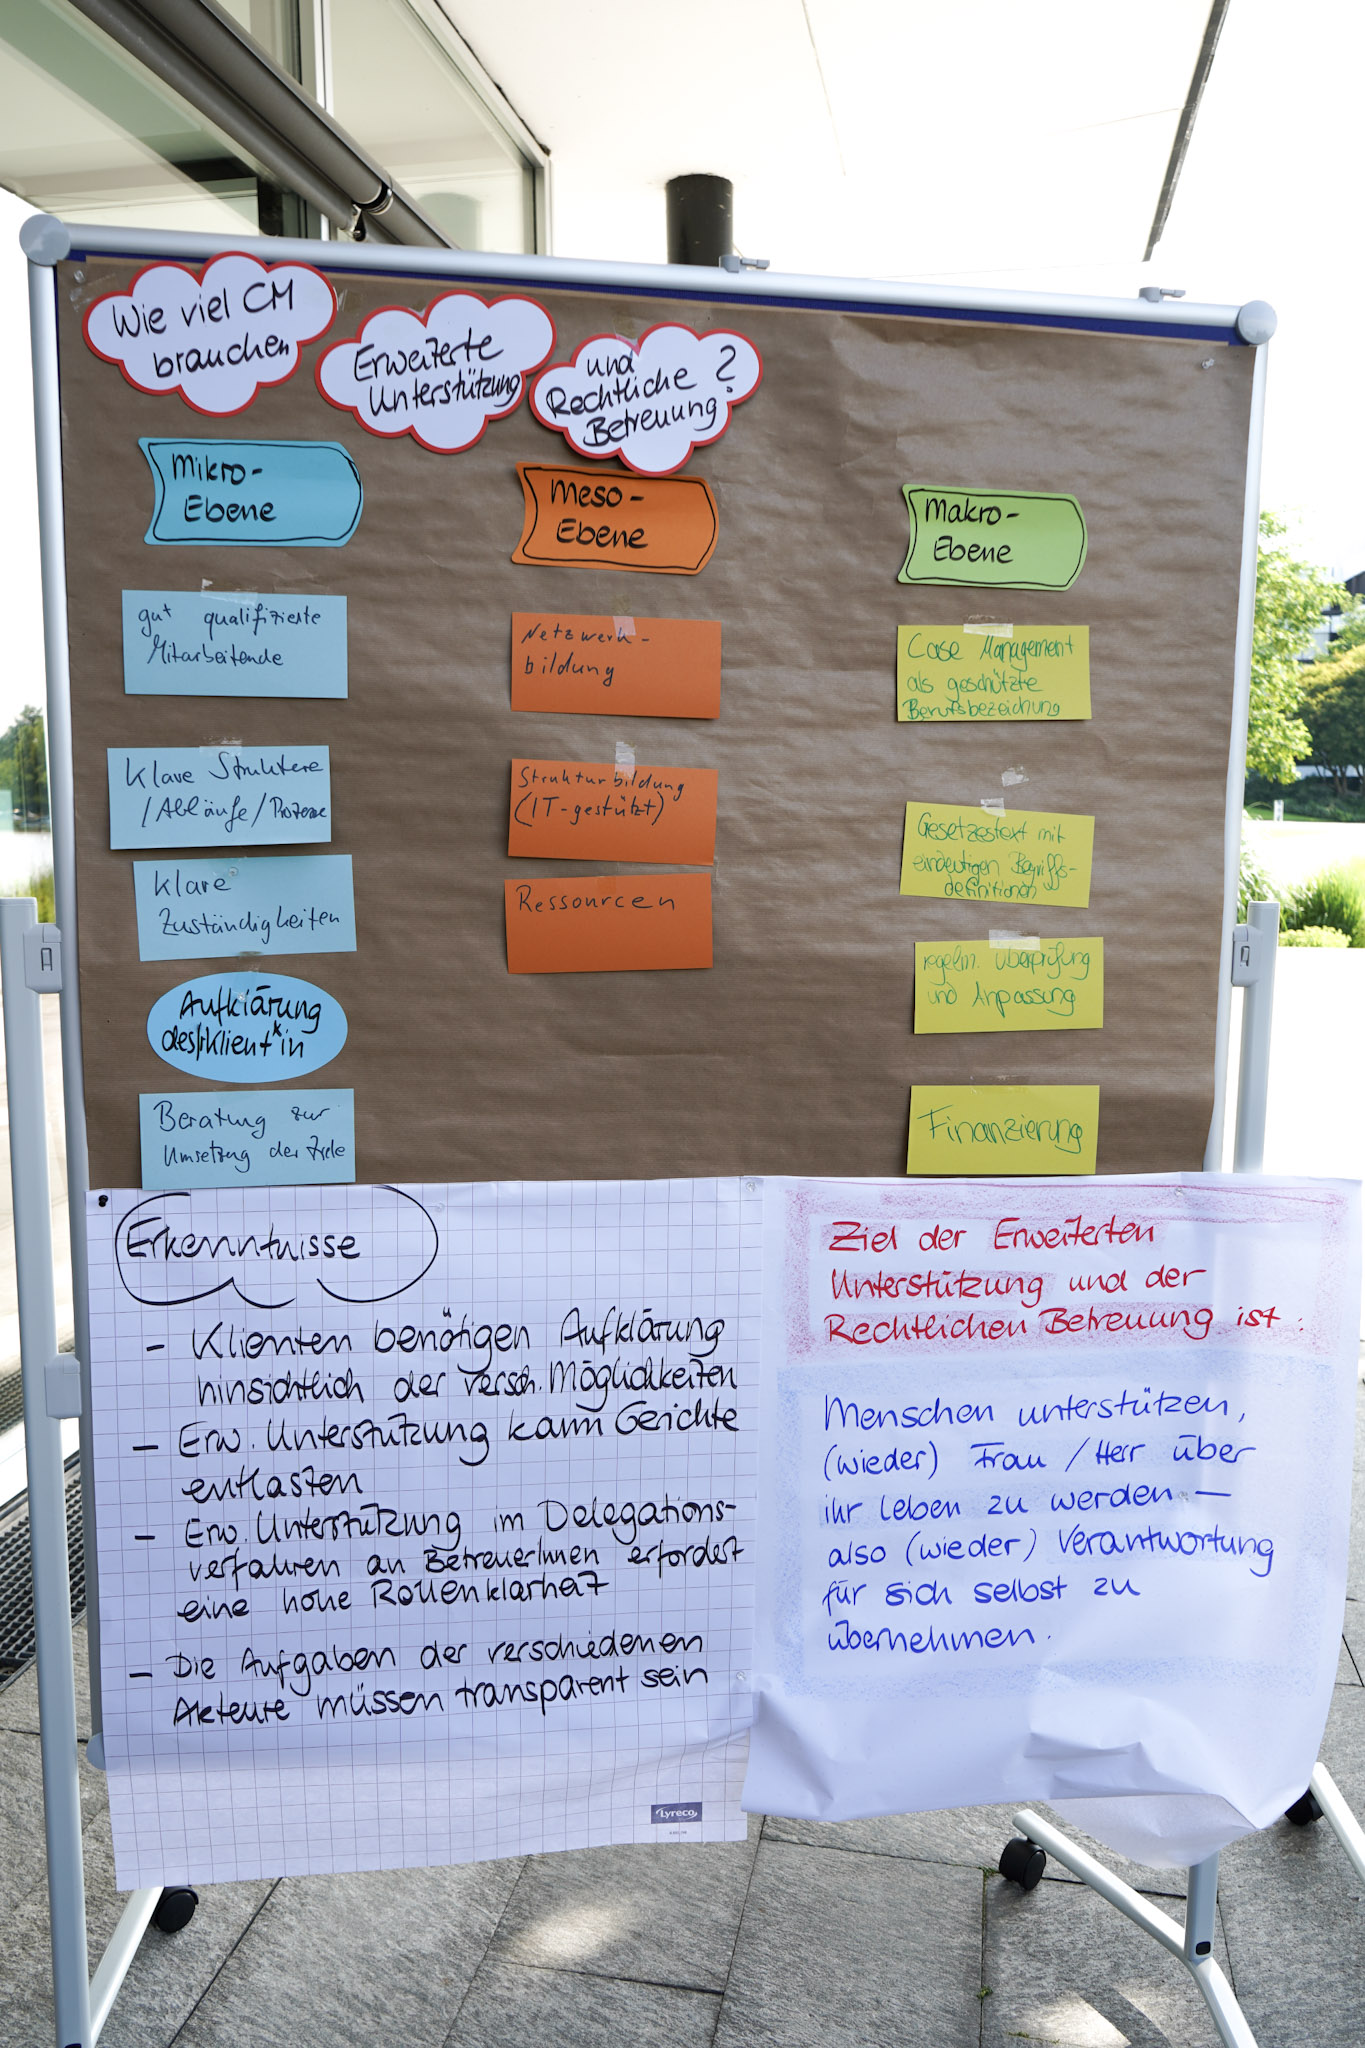 Wie viel CM
brauchen
Erweiterte
Unterstützung
und
Rechtliche ?
Betreuung
Mikro-
Ebene
gut qualifizierte
Mitarbeitende
Klare Strukturen
/Abläufe/Prozesse
Klare
Zuständigkeiten
Aufklärung
des/r Klient*in
Beratung zur
Umsetzung der Ziele
Meso-
Ebene
Netzwerk-
bildung
Strukturbildung
(IT-gestützt)
Ressourcen
Makro-
Ebene
Case Management
als geschützte
Berufsbezeichung
Gesetzestext mit
eindeutigen Begriffs-
definitionen
regelm. Überprüfung
und Anpassung
Finanzierung
Erkenntnisse
- Klienten benötigen Aufklärung
hinsichtlich der versch. Möglichkeiten
- Erw. Unterstützung kann Gerichte
entlasten
- Erw. Unterstützung im Delegations-
verfahren an BetreuerInnen erfordert
eine hohe Rollenklarheit
- Die Aufgaben der verschiedenen
Akteure müssen transparent sein
Lyreco
Ziel der Erweiterten
Unterstützung und der
Rechtlichen Betreuung ist:
Menschen unterstützen,
(wieder) Frau / Herr über
ihr Leben zu werden –
also (wieder) Verantwortung
für sich selbst zu
übernehmen.